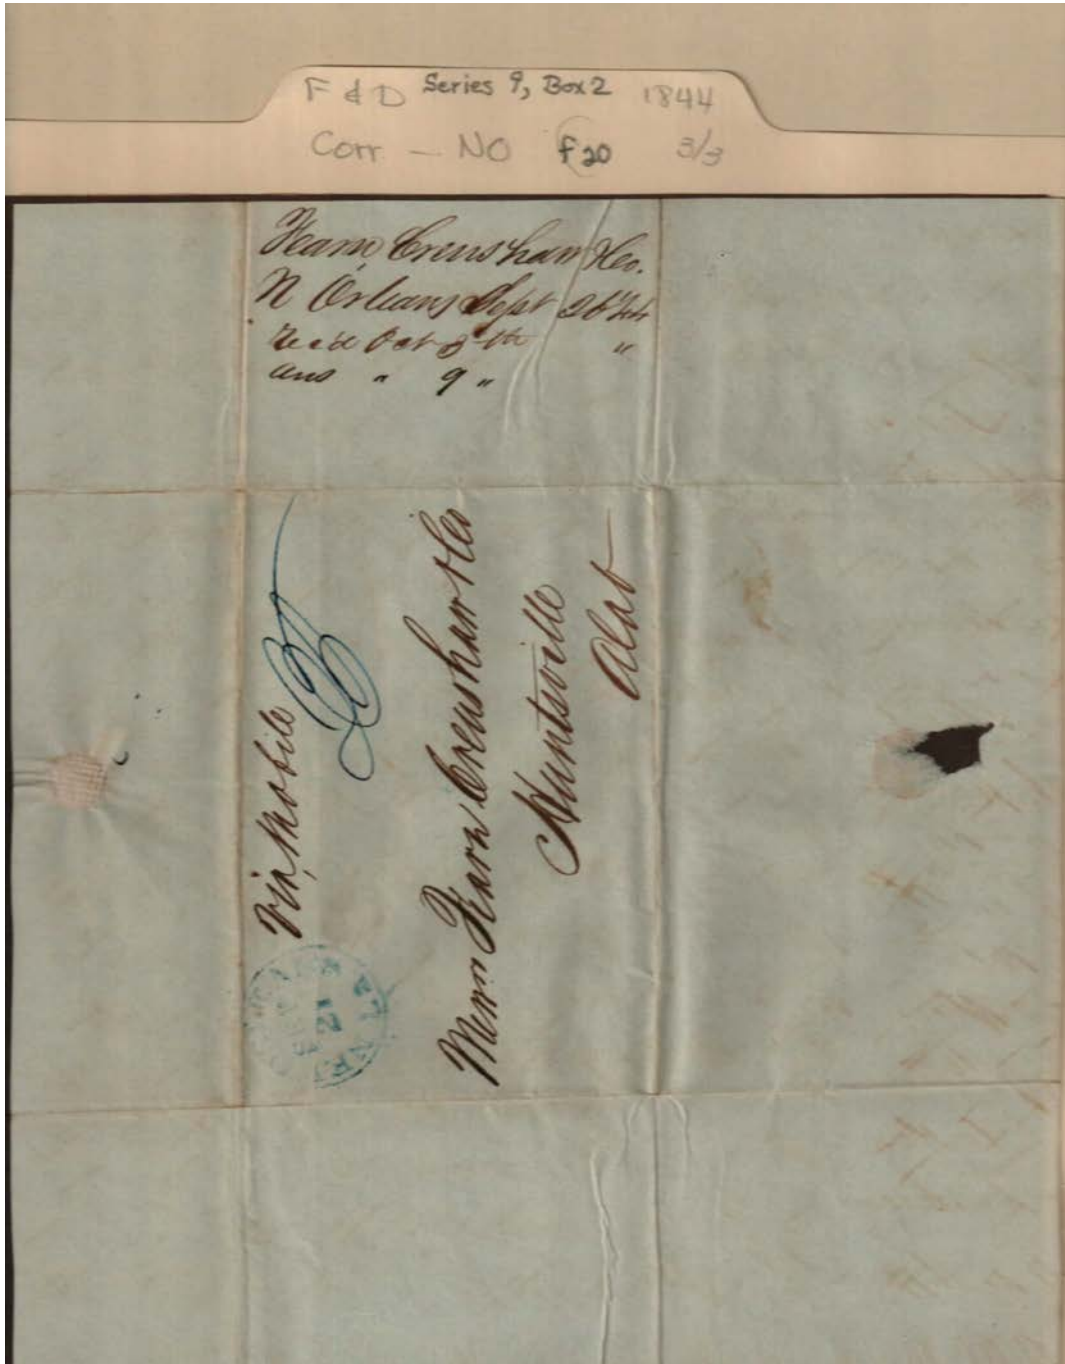 F & D Series 9, Box 2 1844
Corr — NO f 20 3/3
Fearn, Crenshaw &Co.
N Orleans Sept 26 '44
Rec'd Oct 8th "
ans " 9 "
Via Mobile
Messrs Fearn Crenshaw &Co
Huntsville
Alab